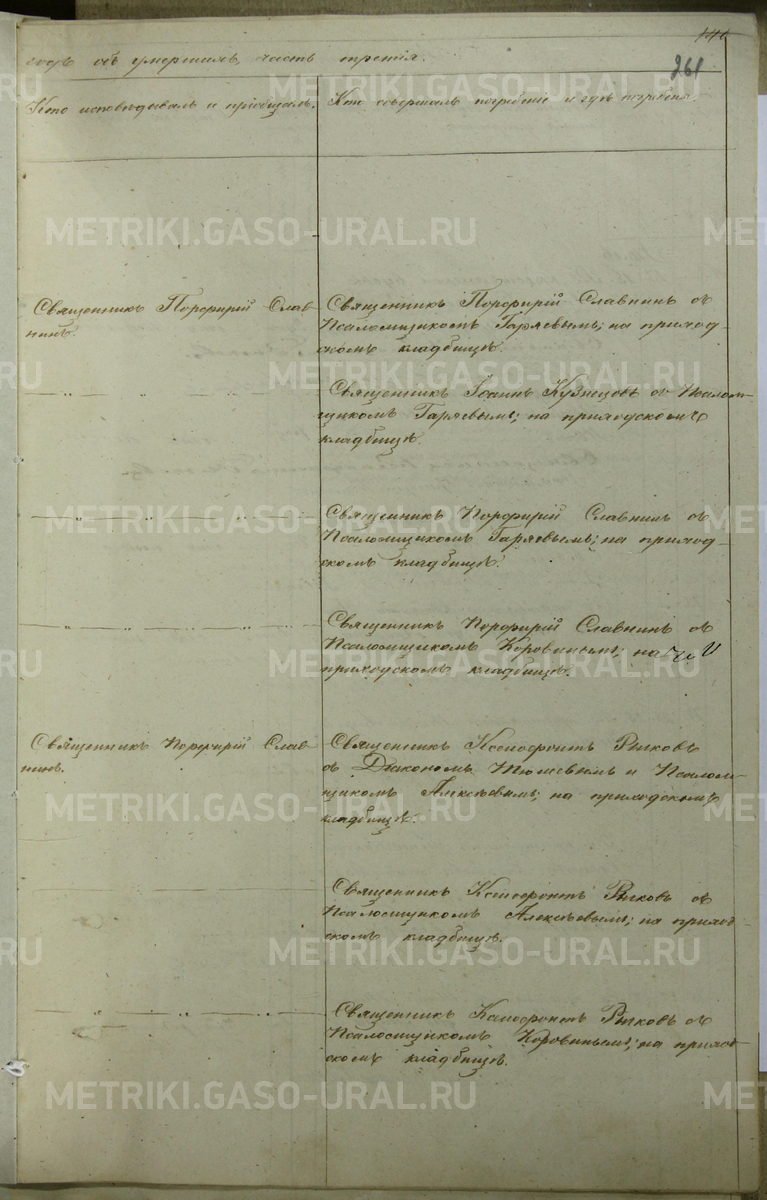 261
годъ объ умершихъ, часть третія.
Кто исповѣдывалъ и пріобщалъ.
Кто совершалъ погребеніе и гдѣ погребены.
Священникъ Порфирій Слав-
нинъ.
Священникъ Порфирій Славнинъ съ
Псаломщикомъ Гаряевымъ; на приход-
скомъ кладбищѣ.
— „ — „ — „ —
Священникъ Іоаннъ Кузнецовъ съ Псалом-
щикомъ Гаряевымъ; на приходскомъ
кладбищѣ.
— „ — „ — „ —
Священникъ Порфирій Славнинъ съ
Псаломщикомъ Гаряевымъ; на приход-
скомъ кладбищѣ.
— „ — „ — „ —
Священникъ Порфирій Славнинъ съ
Псаломщикомъ Коровинымъ; на
приходскомъ кладбищѣ.
Священникъ Порфирій Слав-
нинъ.
Священникъ Ксенофонтъ Рычковъ
съ Діакономъ и Псалом-
щикомъ Алексѣевымъ; на приходскомъ
кладбищѣ.
Священникъ Ксенофонтъ Рычковъ съ
Псаломщикомъ Алексѣевымъ; на приход-
скомъ кладбищѣ.
— „ — „ — „ —
Священникъ Ксенофонтъ Рычковъ съ
Псаломщикомъ Коровинымъ; на приход-
скомъ кладбищѣ.
METRIKI.GASO-URAL.RU